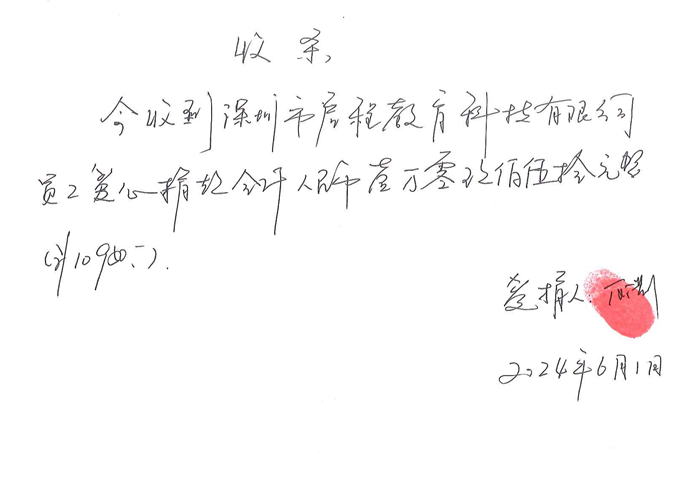 收条
今收到深圳市启程教育科技有限公司
员工爱心捐款合计人民币壹万零玖佰伍拾元整
(¥10950.-).
受捐人:
2024年6月1日